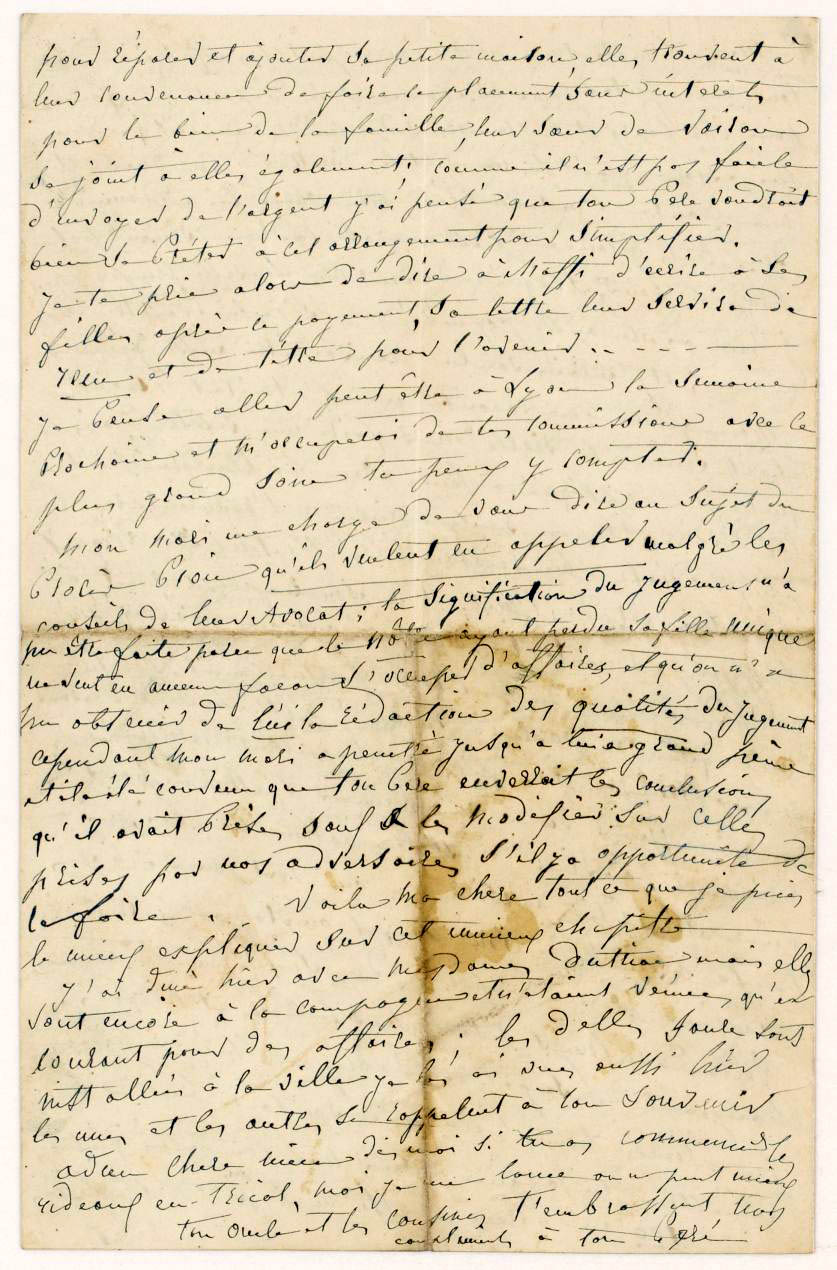 pour réparer et ajouter sa petite maison elles trouvent à
leur convenance de faire ce placement, sans interets
pour le bien de la famille, leur sœur de Vaison
se joint à elles également. comme il n'est pas facile
d'envoyer de l'argent j'ai pensé que ton Pere voudrait
bien se Prêter à cet arrangement pour simplifier.
Je te prie alors de dire à Maffi d'ecrire à Ses
filles après ce payement, sa lettre leur Servira de
reçu et de titre pour l'avenir. . - - -
Je Pense aller peut être à Lyon la Semaine
Prochaine et m'occuperai de tes Commissions avec le
plus grand Soin tu peux y compter.
mon mari me charge de vous dire au Sujet du
Procès qu'ils veulent en appeler malgré les
conseils de leur Avocat ; la signification du jugement n'a
pu être faite parce que le ayant perdu sa fille unique
ne veut en aucune façon s'occuper d'affaires, et qu'on n'a
pu obtenir de lui la rédaction des qualités du jugement
cependant mon mari a penetré jusqu'à lui à grand peine
et il a été convenu que ton Pere enverrait les conclusions
qu'il avait Prises sauf à les modifier sur celles
prises par nos adversaires s'il y a opportunité de
le faire. Voilà ma chere tout ce que je puis
le mieux expliquer sur cet ennuieux chapitre
J'ai diné hier avec Mesdames mais elles
sont encore à la campagne et n'etaient venues qu'en
courant pour des affaires. les Delles sont
installées à la ville je les ai vues aussi hier
les unes et les autres se rappelent à ton Souvenir
adieu chere niece dis moi si tu as commencé le
rideaux en tricot, moi je me lance on ne peut mieux
ton oncle et les cousines t'embrassent, mes
compliments à ton Pere